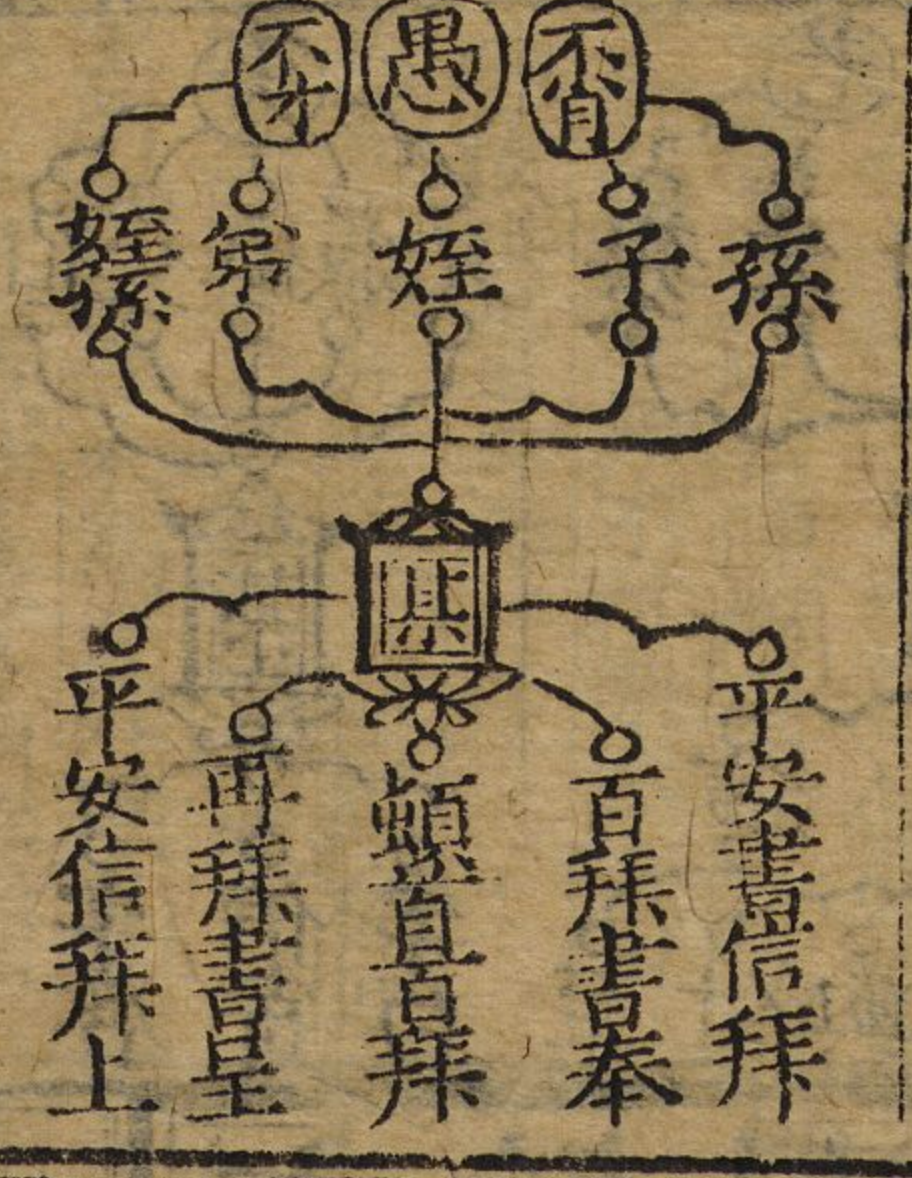 不肖
愚
不才
孫
子
姪
弟
姪孫
平安書信拜
百拜書奉
頓首百拜
再拜書呈
平安信拜上